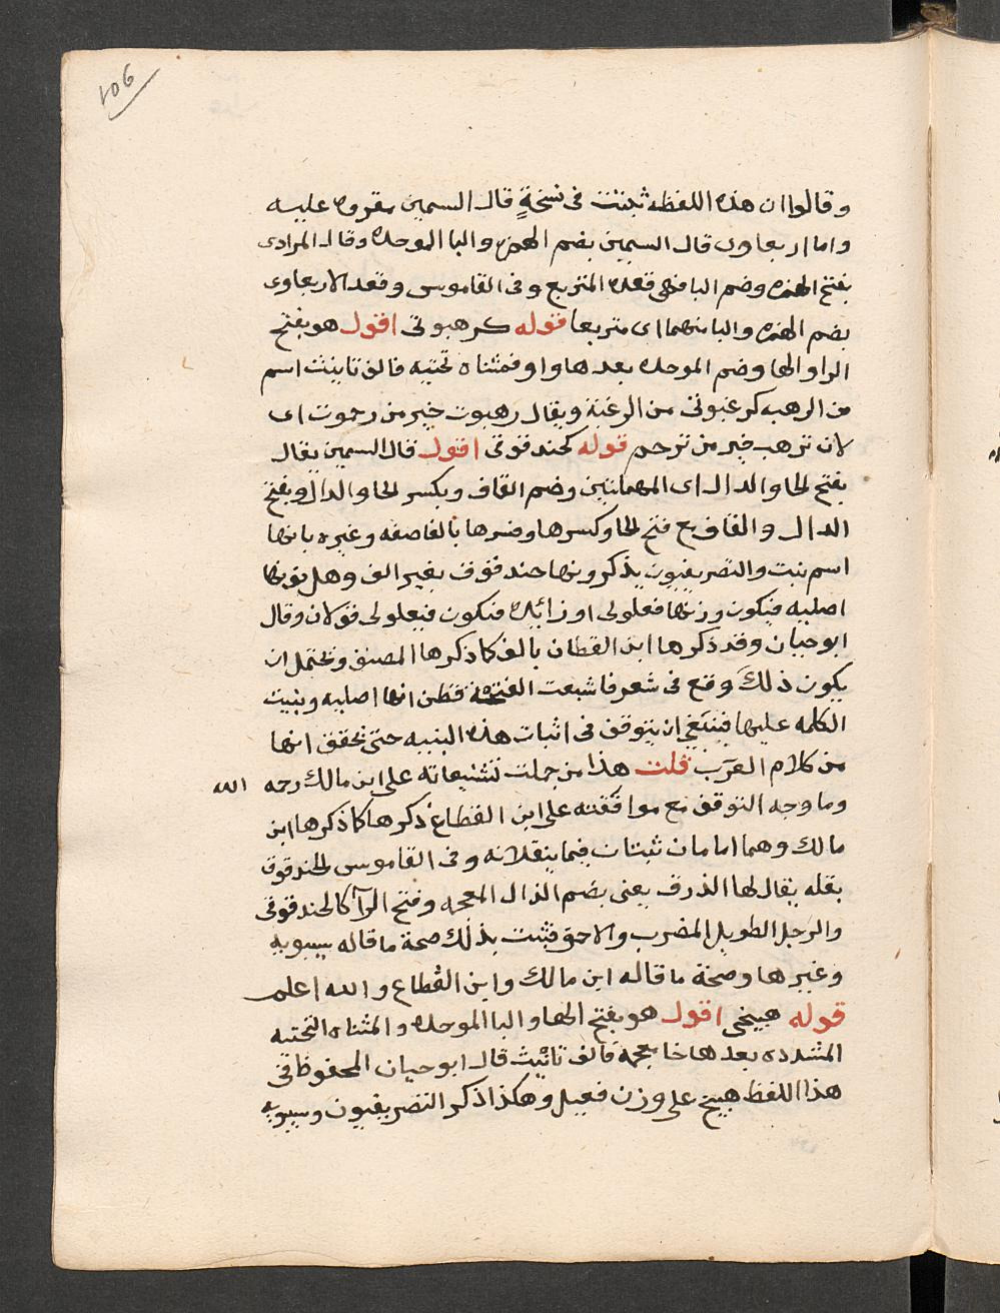 106
وقالوا ان هذه اللفظه ثبتت فى نسخةٍ قال السمين مقروه عليه
واما اربعاوى قال السمين بضم الهمزه والبا الموحده وقال المرادى
بفتح الهمزه وضم البا فهى قعدة المتربع وفى القاموس وقعد الاربعاوى
بضم الهمزه والبا منهما اى متربعا قوله كرهبوتى اقول هو بفتح
الرا والها وضم الموحده بعدها واو فمثناه تحتيه فالف تانيث اسم
من الرهب كرغبوتى من الرغبة ويقال رهبوت خير من رحموت اى
لان ترهب خير من ترحم قوله كحندقوقى اقول قال السمين يقال
بفتح الحا والدال اى المهملتين وضم القاف وبكسر الحا والدال وبفتح
الدال والقاف مع فتح الحا وكسرها وضرها بالقاصفه وغيره بانها
اسم نبت والتصريفيون يذكرونها حندقوق بغير الف وهل نونها
اصليه فيكون وزنها فعلولى او زائده فتكون فنعلولى قولان وقال
ابو حيان وقد ذكرها ابن القطان بالف كما ذكرها المصنف ويحتمل ان
يكون ذلك وقع فى شعر فاشبعت الفتحة فظن انها اصليه وبنيت
الكلمه عليها فينبغى ان يتوقف فى اثبات هذه البنيه حتى نحقق انها
من كلام العرب قلت هذا من جملت تشنيعاته على ابن مالك رحمه الله
وما وجه التوقف مع موافقته على ابن القطاع ذكرها كما ذكرها ابن
مالك وهما امامان ثبتان فيما ينقلانه وفى القاموس الحندقوق
بقله يقال لها الذرق يعنى بضم الذال المعجمه وفتح الرآ كالحندقوقى
والرجل الطويل المضرب والاحمق فثبت بذلك صحة ما قاله سيبويه
وغيرها وصحة ما قاله ابن مالك وابن القطاع والله اعلم
قوله هبيخى اقول هو بفتح الها والبا الموحده والمثناه التحتيه
المشدده بعدها خا معجمة فالف تانيث قال ابو حيان المحفوظ فى
هذا اللفظ هبيخ على وزن فعيل وهكذا ذكر التصريفيون وسيبويه